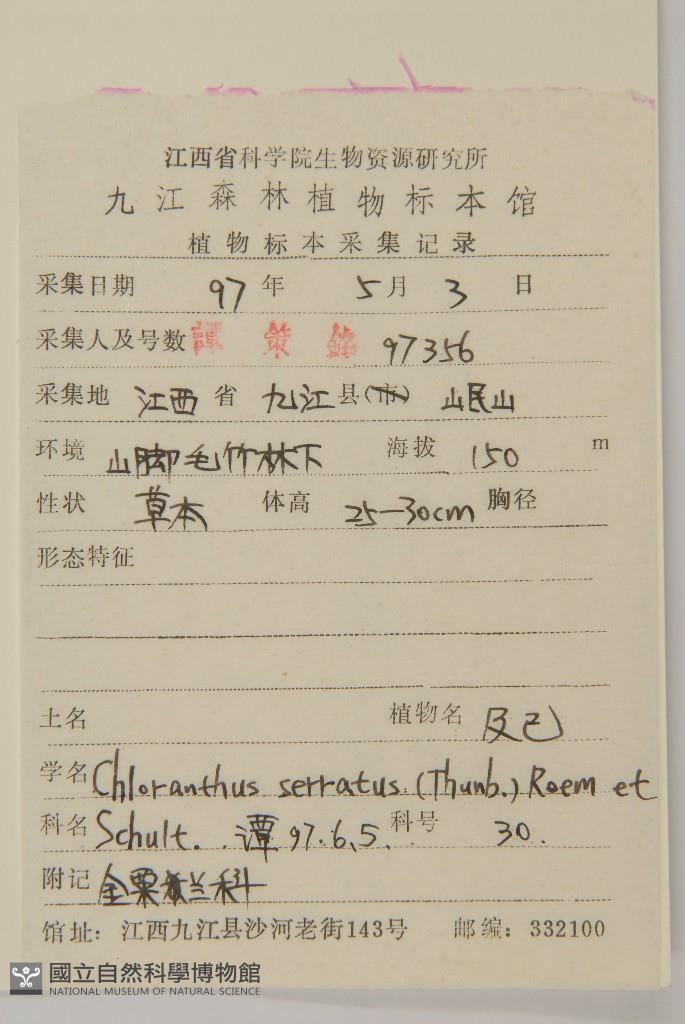 江西省科学院生物资源研究所
九江森林植物标本馆
植物标本采集记录
采集日期 97 年 5 月 3 日
采集人及号数 譚策銘 97356
采集地 江西 省 九江 县(市) 山民山
环境 山脚毛竹林下 海拔 150 m
性状 草本 体高 25-30cm 胸径
形态特征
土名 植物名 及己
学名 Chloranthus serratus (Thunb.) Roem et
科名 Schult. 潭 97.6.5. 科号 30.
附记 金粟兰科
馆址：江西九江县沙河老街143号 邮编：332100
國立自然科學博物館
NATIONAL MUSEUM OF NATURAL SCIENCE